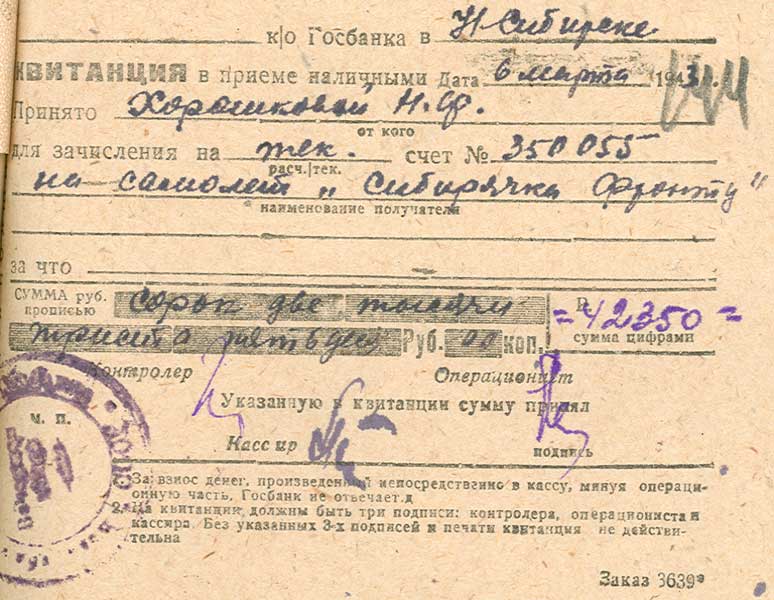 к/о Госбанка в Н-Сибирске
КВИТАНЦИЯ в приеме наличными Дата 6 марта 1943г.
Принято Хорошковой Н.Ф.
от кого
для зачисления на тек. счет № 350055
расч./тек.
на самолет „Сибирячка фронту"
наименование получателя
за что
СУММА руб. прописью сорок две тысячи
триста пятьдес Руб. 00 коп.
Р =42350=
сумма цифрами
Контролер Операционист
Указанную в квитанции сумму принял
М. П.
Кассир
подпись
За взнос денег, произведенный непосредственно в кассу, минуя операци-
онную часть, Госбанк не отвечает.
2. На квитанции должны быть три подписи: контролера, операциониста и
кассира. Без указанных 3-х подписей и печати квитанция не действи-
тельна
Заказ 3639